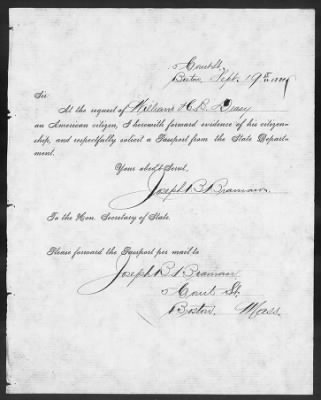 Court St.
Boston Sept. 19th 188
Sir.
At the request of William H. B.
an American citizen, I herewith forward evidence of his citizen-
ship, and respectfully solicit a Passport from the State Depart-
ment.
Your obedt Servt.
Joseph B. Braman
To the Hon. Secretary of State.
Please forward the Passport per mail to
Joseph B. Braman
Court St.
Boston Mass.